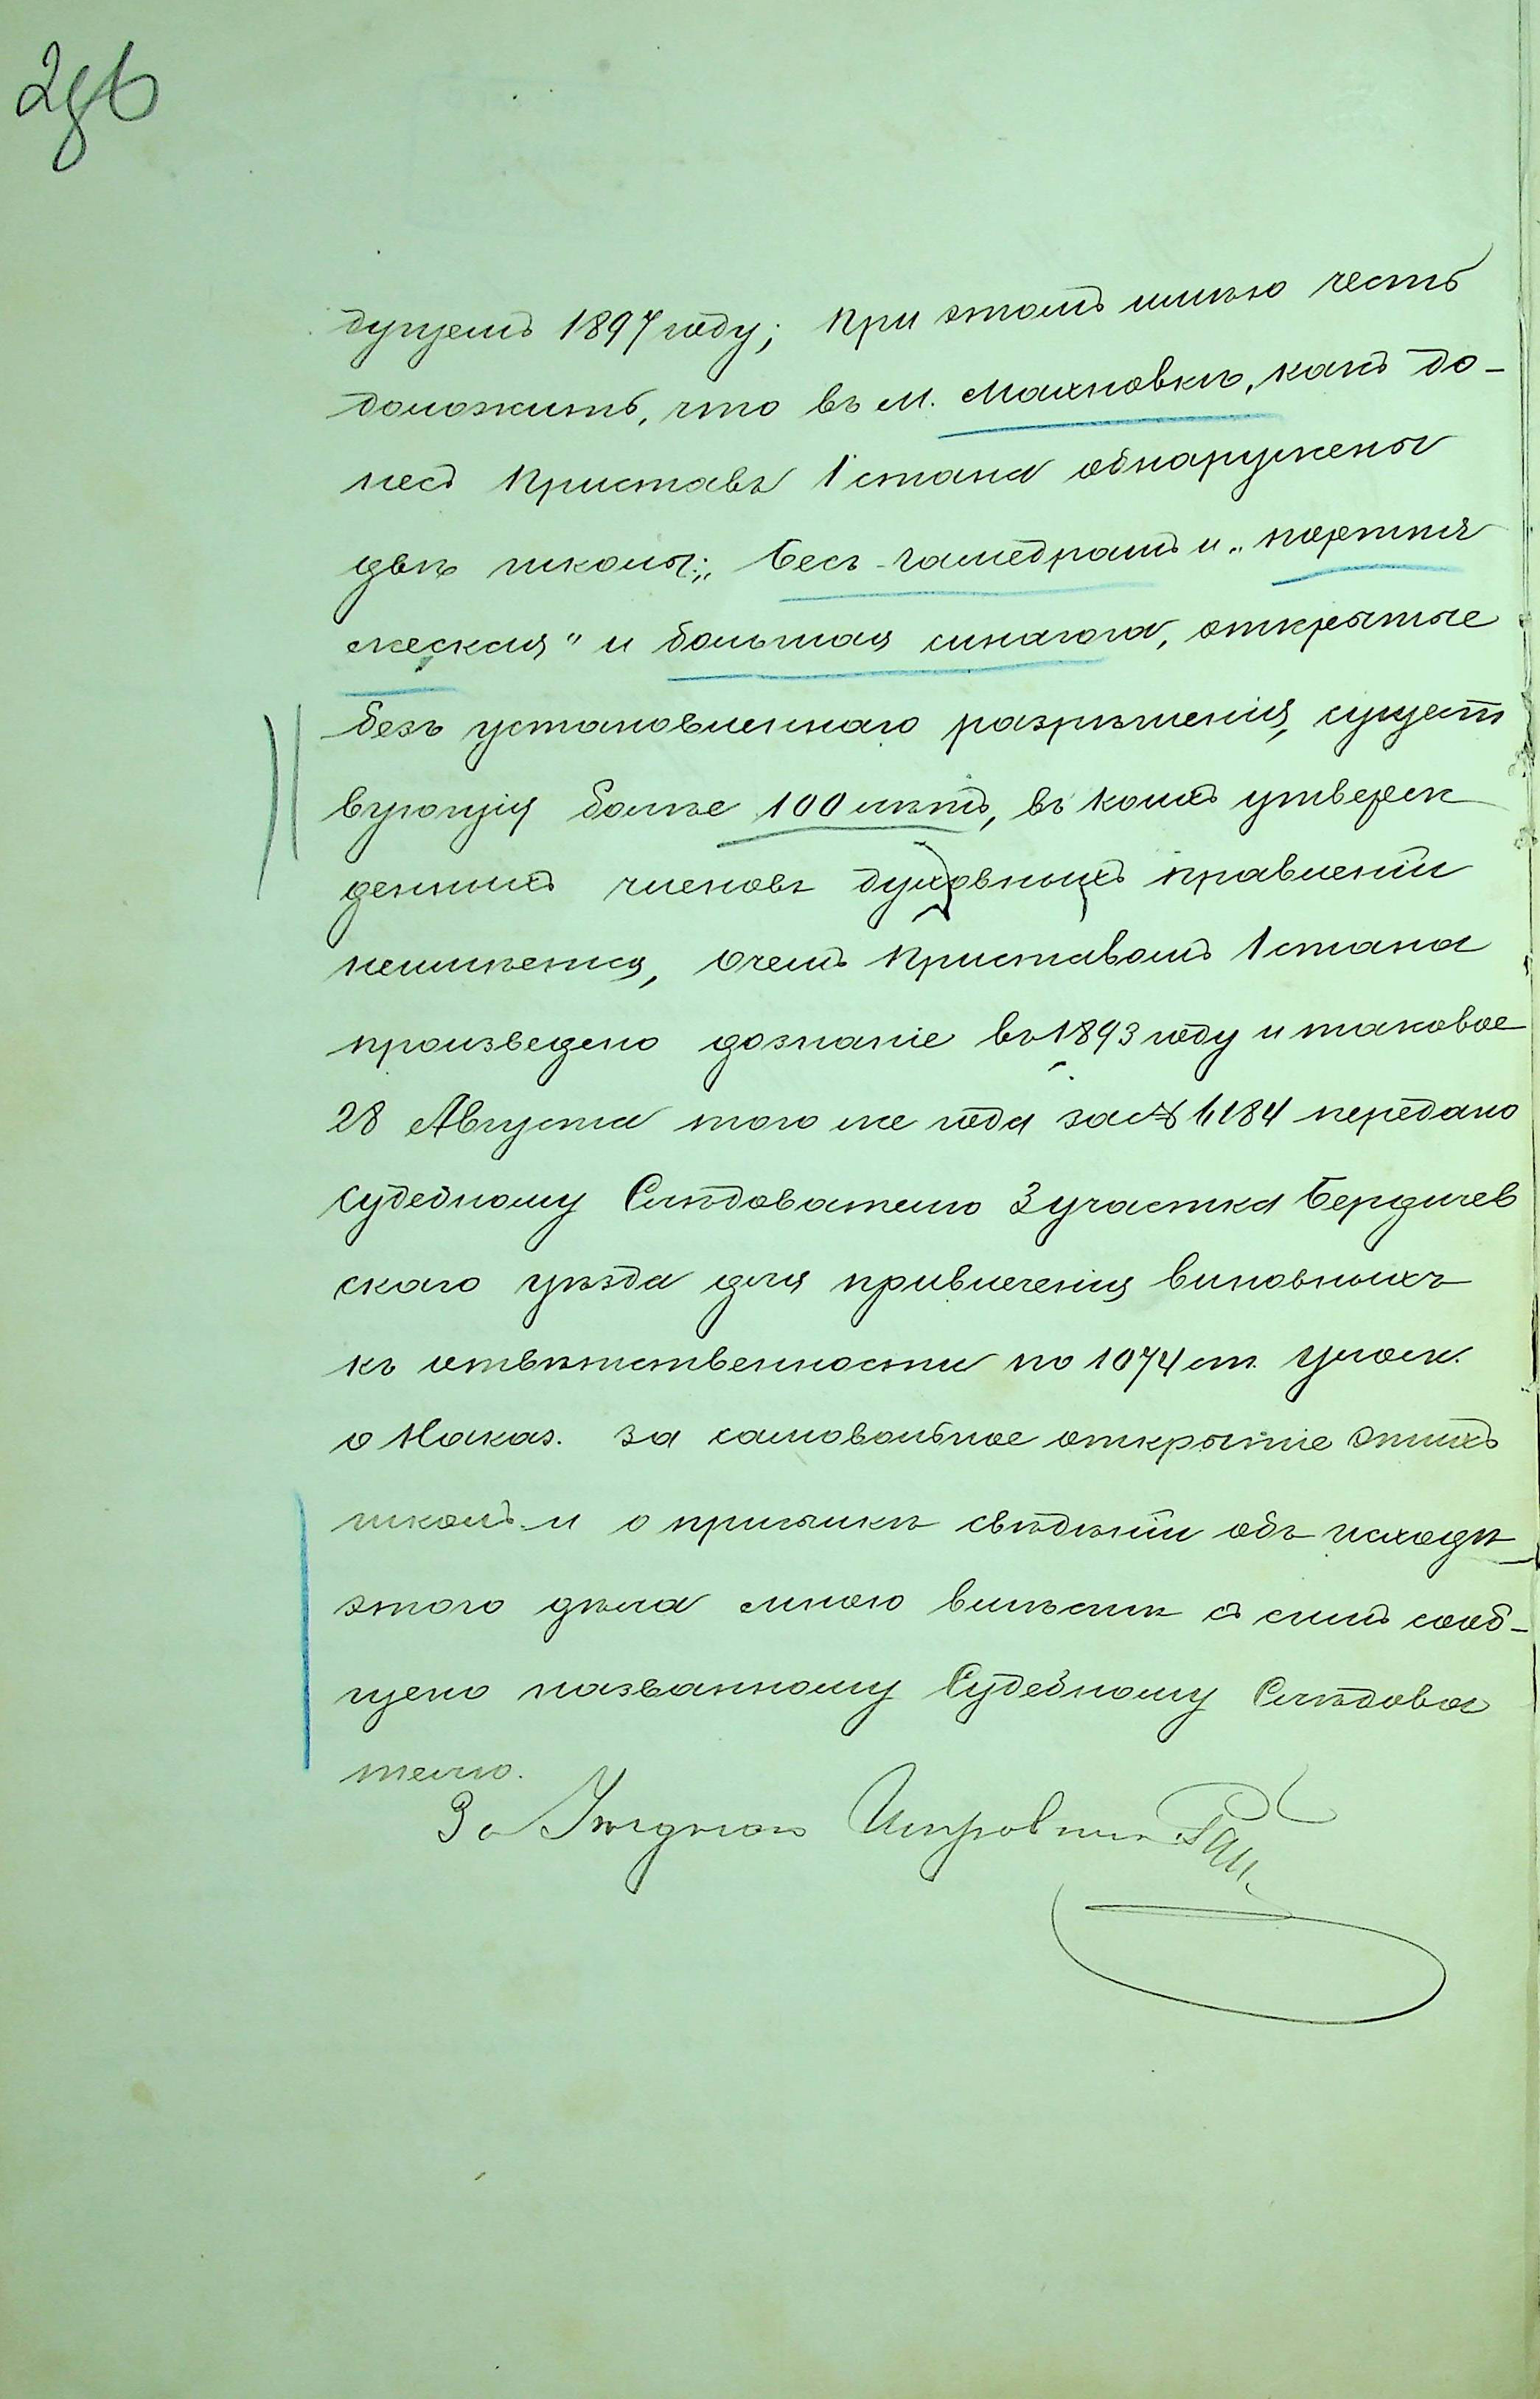 дущемъ 1897 году; при этомъ имѣю честь
доложить, что въ м. Махновкѣ, какъ до-
несъ Приставъ 1 стана обнаружены
двѣ школы: „Бесъ-гамедрашъ и „портня
жеская" и большая синагога, открытые
безъ установленнаго разрѣшенія, сущест
вующія болѣе 100 лѣтъ, въ коихъ утверж
денныхъ членовъ духовныхъ правленій
неимѣется, очемъ Приставомъ 1 стана
произведено дознаніе въ 1893 году и таковое
28 Августа того же года за № 4184 передано
Судебному Слѣдователю 3 участка Бердичев
скаго уѣзда для привлеченія виновныхъ
къ отвѣтственности по 1074 ст. Улож.
о Наказ. за самовольное открытіе этихъ
школъ и о присылкѣ свѣдѣній объ исходѣ
этого дѣла мною вмѣстѣ съ симъ сооб-
щено названному Судебному Слѣдова
телю.
За Уѣзднаго Исправника